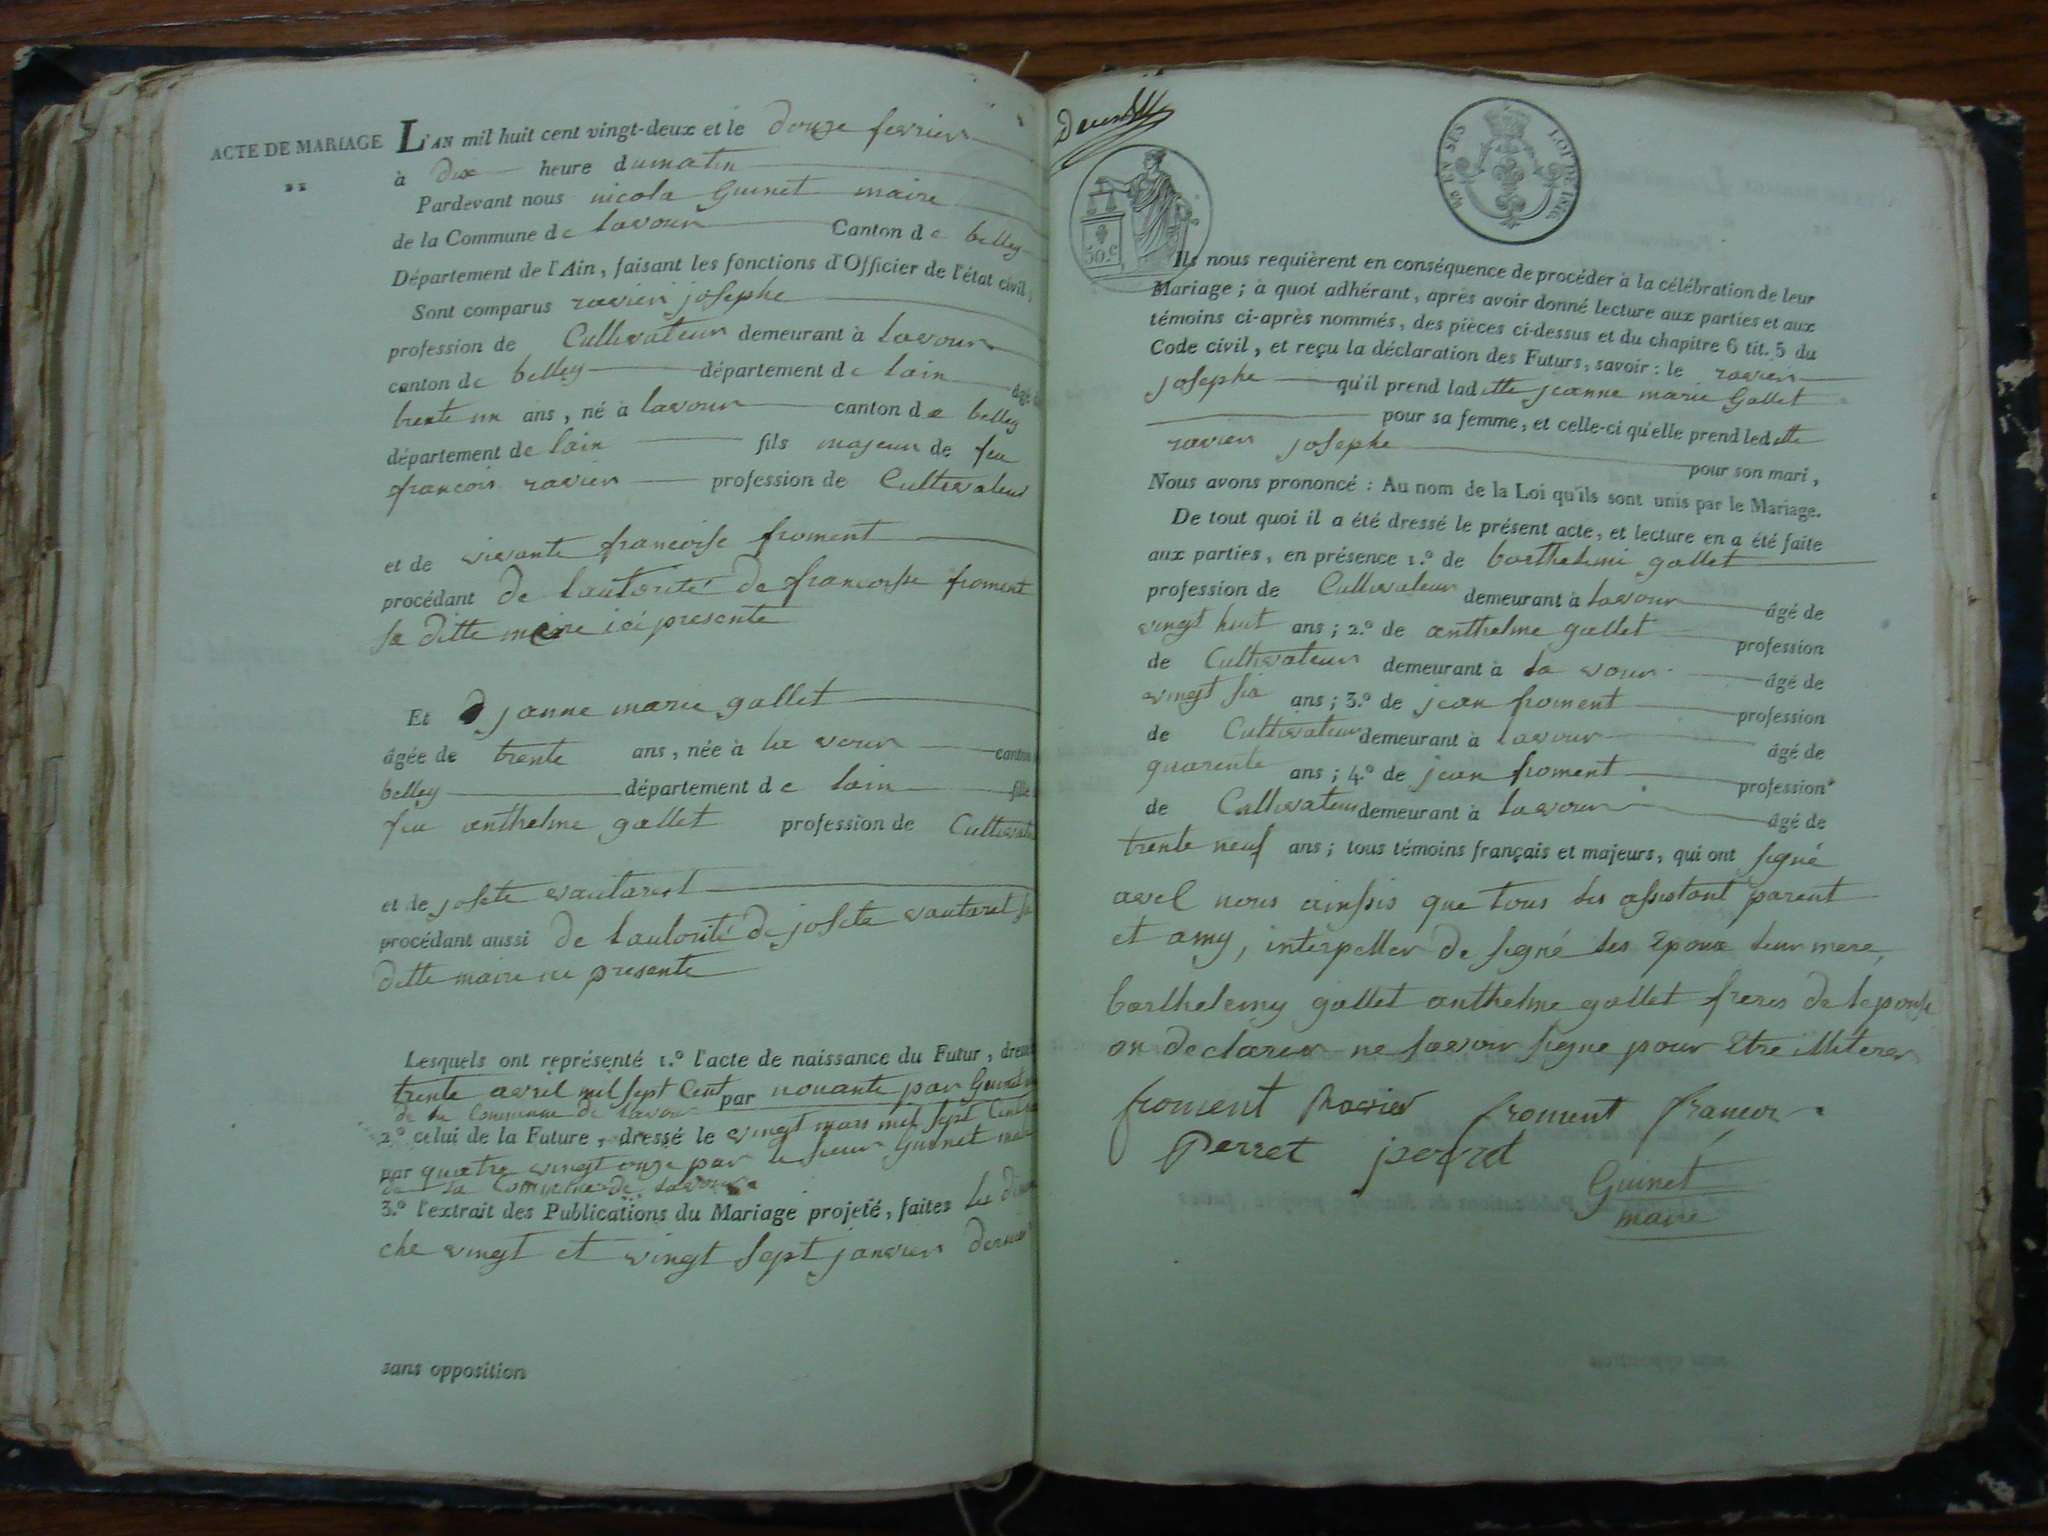 ACTE DE MARIAGE
L'AN mil huit cent vingt-deux et le douze fevrier
à dix heure dumatin
Pardevant nous nicola Guinet maire
de la Commune de lavour Canton de belley
Département de l'Ain, faisant les fonctions d'Officier de l'état civil,
Sont comparus ravier josephe
profession de Cultivateur demeurant à lavour
canton de belley département de lain âgé
trente un ans, né à lavour canton de belley
département de lain fils majeur de feu
francois ravier profession de Cultivateur
et de vivante francoise froment
procédant de lautorité de francoise froment
sa ditte mere ici presente
Et janne marie gallet
âgée de trente ans, née à la vour canton
belley département de lain fille
feu anthelme gallet profession de Cultivate
et de josete vautaret
procédant aussi de lautorité de josete vautaret sa
ditte maire ici presente
Lesquels ont représenté 1.º l'acte de naissance du Futur, dressé
trente avril mil sept Cent par nonante par Guinet
de la Commune de lavour
2.º celui de la Future, dressé le vingt mars mil sept Cent
par quatre vingt onze par le sieur Guinet maire
de la Commune de lavour
3.º l'extrait des Publications du Mariage projeté, faites le diman
che vingt et vingt sept janvier dernier
sans opposition
50.C
LOI DE 1816.
Ils nous requièrent en conséquence de procéder à la célébration de leur
Mariage; à quoi adhérant, après avoir donné lecture aux parties et aux
témoins ci-après nommés, des pièces ci-dessus et du chapitre 6 tit. 5 du
Code civil, et reçu la déclaration des Futurs, savoir: le ravier
josephe qu'il prend laditte jeanne marie Gallet
pour sa femme, et celle-ci qu'elle prend leditte
ravier josephe pour son mari,
Nous avons prononcé: Au nom de la Loi qu'ils sont unis par le Mariage.
De tout quoi il a été dressé le présent acte, et lecture en a été faite
aux parties, en présence 1.º de barthelemi gallet
profession de Cultivateur demeurant à lavour âgé de
vingt huit ans; 2.º de anthelme gallet profession
de Cultivateur demeurant à la vour âgé de
vingt six ans; 3.º de jean froment profession
de Cultivateur demeurant à lavour âgé de
quarente ans; 4.º de jean froment profession
de Cultivateur demeurant à lavour âgé de
trente neuf ans; tous témoins français et majeurs, qui ont signé
avec nous ainssis que tous les assistant parent
et amy, interpeller de signé les Epoux leur mere,
barthelemy gallet anthelme gallet freres de lepouse
on declarer ne savoir signe pour Etre illiterer
froment Ravier froment francois
Perret
Guinet
maire